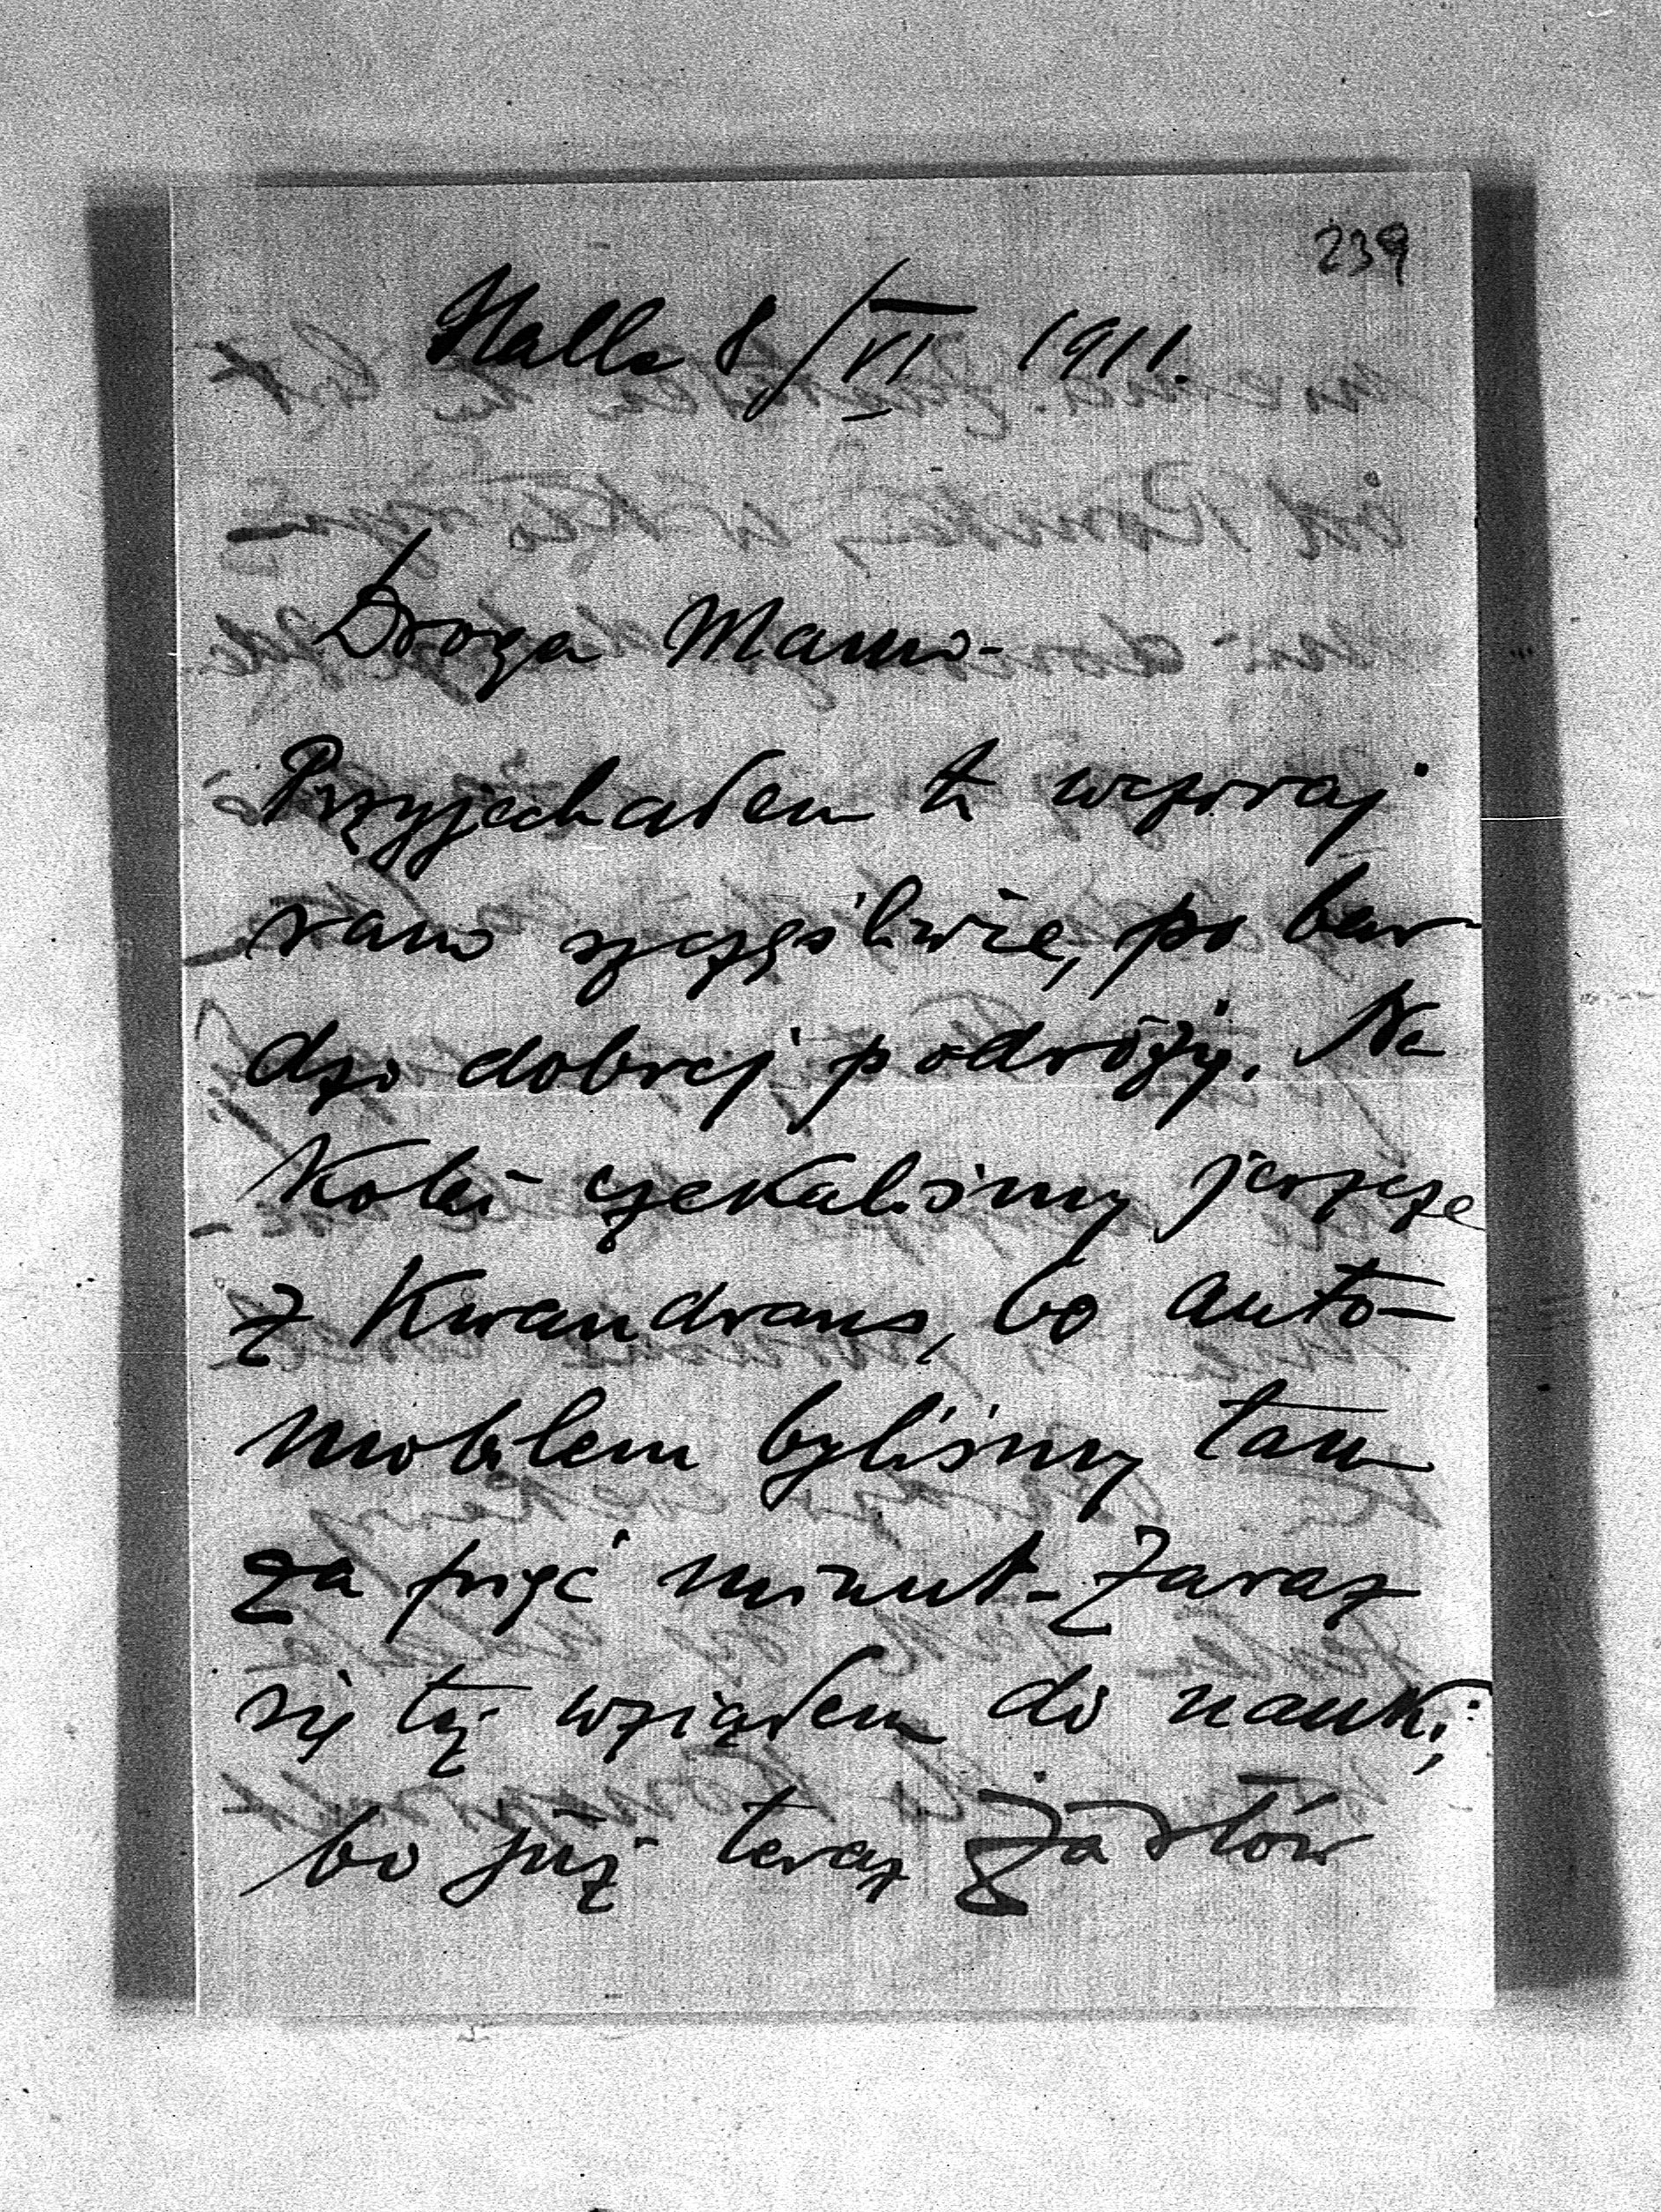 239
Halle 8/VI 1911.
Droga Mamo-
Przyjechałem tu wczoraj
rano szczęśliwie, po bar-
dzo dobrej podróży. Na
Kolei czekaliśmy jeszcze
z Kwandrans, bo auto-
mobilem byliśmy tam
za pięć minut- Zaraz
się też wziąłem do nauki,
bo już teraz żartów